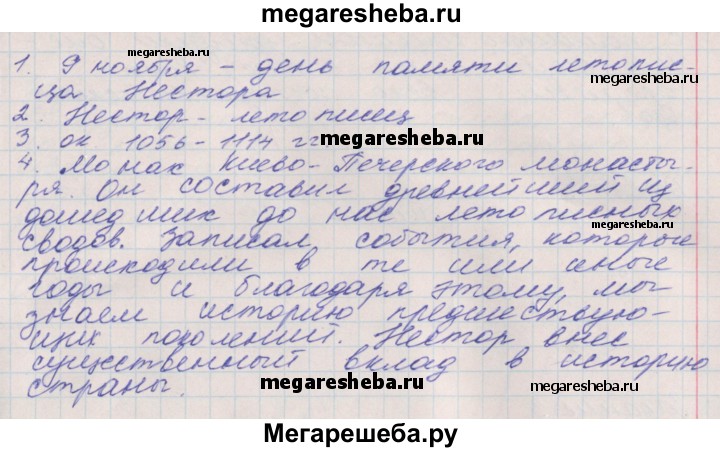 megaresheba.ru
1. 9 ноября – день памяти летопис-
megaresheba.ru
megaresheba.ru
ца Нестора
2. Нестор - летописец
3. ок 1056 - 1114 гг
megaresheba.ru
4. Монах Киево-Печерского монасты-
ря. Он составил древнейший из
дошедших до нас летописных
megaresheba.ru
сводов. Записал события, которые
происходили в те или иные
годы и благодаря этому, мы
знаем историю предшествую-
щих поколений. Нестор внес
существенный вклад в историю
страны.
megaresheba.ru
megaresheba.ru
Мегарешеба.ру